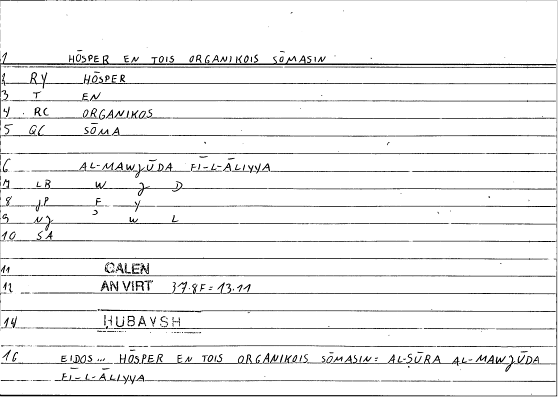 1 HŌSPER EN TOIS ORGANIKOIS SŌMASIN
2 RY HŌSPER
3 T EN
4 RC ORGANIKOS
5 QC SŌMA
6 AL-MAWJŪDA FĪ-L-ĀLIYYA
7 LR W J D
8 JP F Y
9 NJ ʾ W L
10 SA
11 GALEN
12 AN VIRT 37.8F = 13.11
14 HUBAYSH
16 EIDOS... HŌSPER EN TOIS ORGANIKOIS SŌMASIN: AL-ṢŪRA AL-MAWJŪDA
FĪ-L-ĀLIYYA